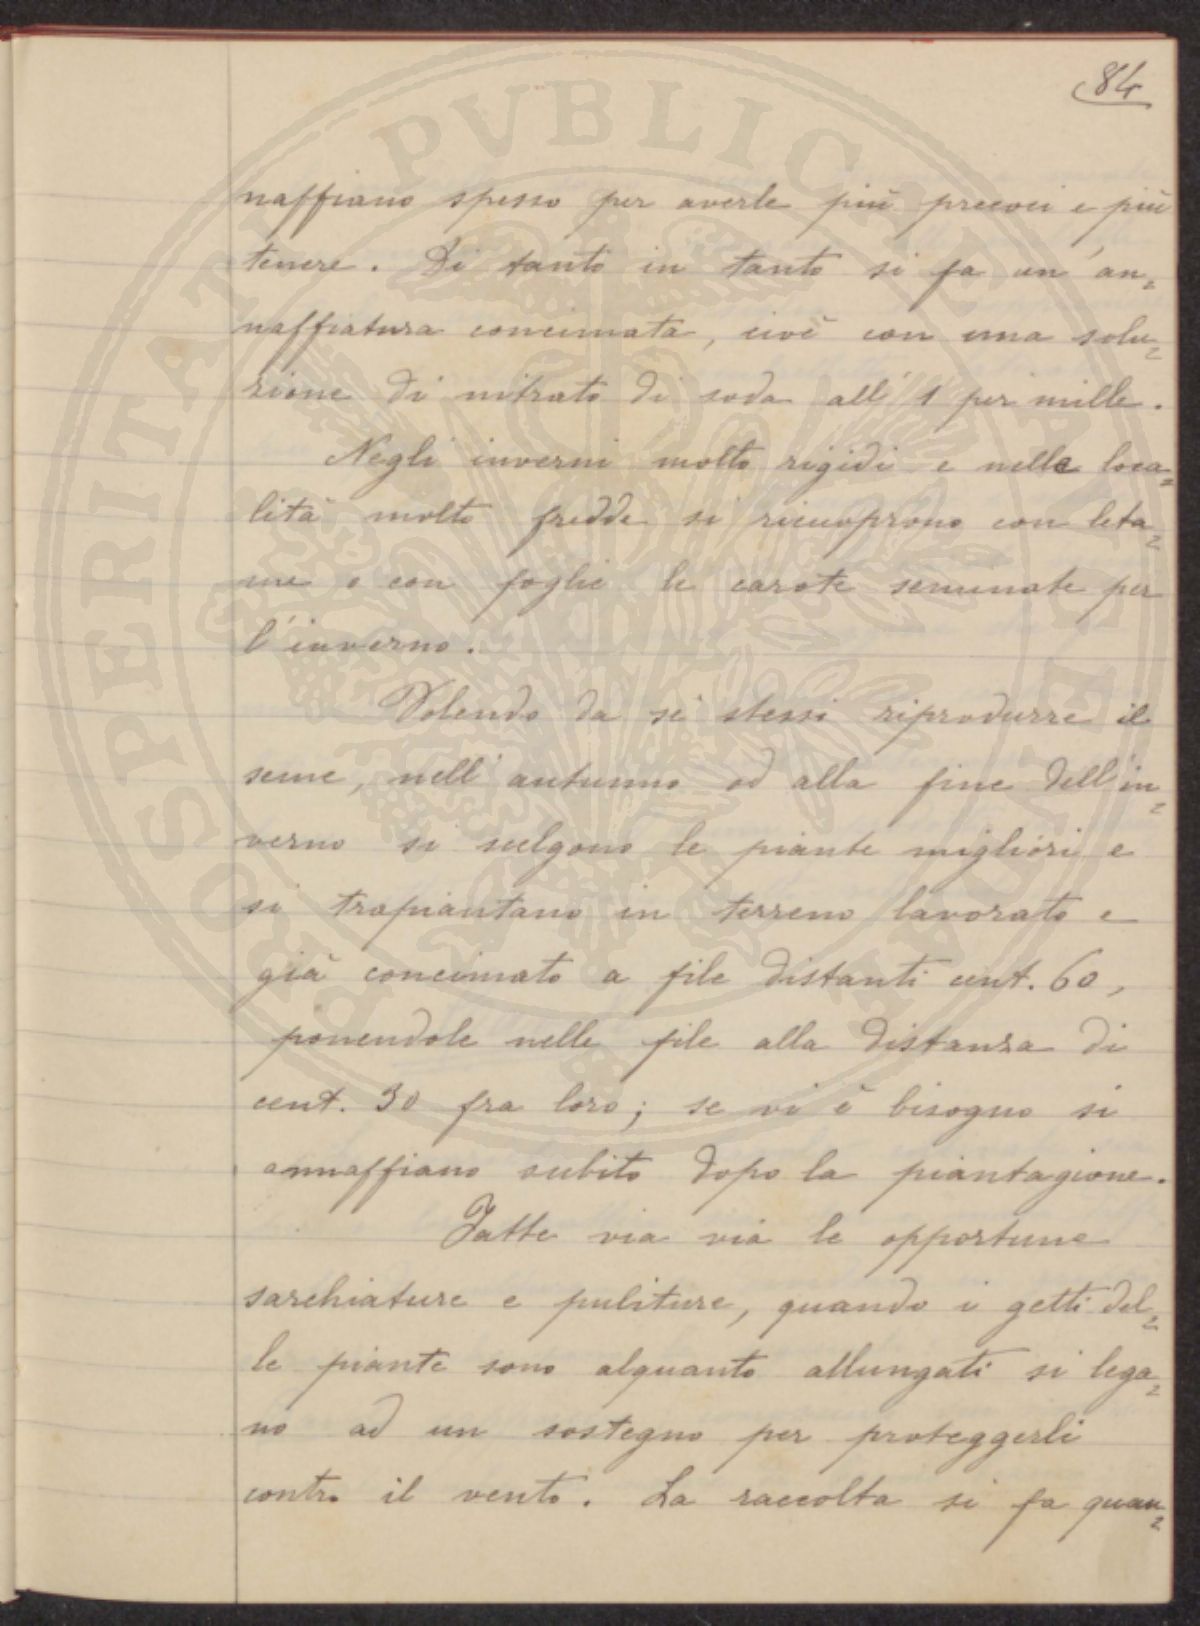 84
naffiano spesso per averle più precoci e più
tenere. Di tanto in tanto si fa un'an=
naffiatura concimata, cioè con una solu=
zione di nitrato di soda all'1 per mille.
Negli inverni molto rigidi e nelle loca=
lità molto fredde si ricuoprono con leta=
me o con foglie le carote seminate per
l'inverno.
Volendo da sè stessi riprodurre il
seme, nell'autunno od alla fine dell'in=
verno si scelgono le piante migliori e
si trapiantano in terreno lavorato e
già concimato a file distanti cent. 60,
ponendole nelle file alla distanza di
cent. 30 fra loro; se vi è bisogno si
annaffiano subito dopo la piantagione.
Fatte via via le opportune
sarchiature e puliture, quando i getti del=
le piante sono alquanto allungati si lega=
no ad un sostegno per proteggerli
contro il vento. La raccolta si fa quan=
PROSPERITATI PVBLICAE AVGENDAE